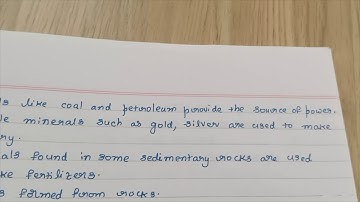 ls like coal and petroleum provide the source of power.
le minerals such as gold, silver are used to make
ry.
als found in some sedimentary rocks are used
ke fertilizers.
s formed from rocks.